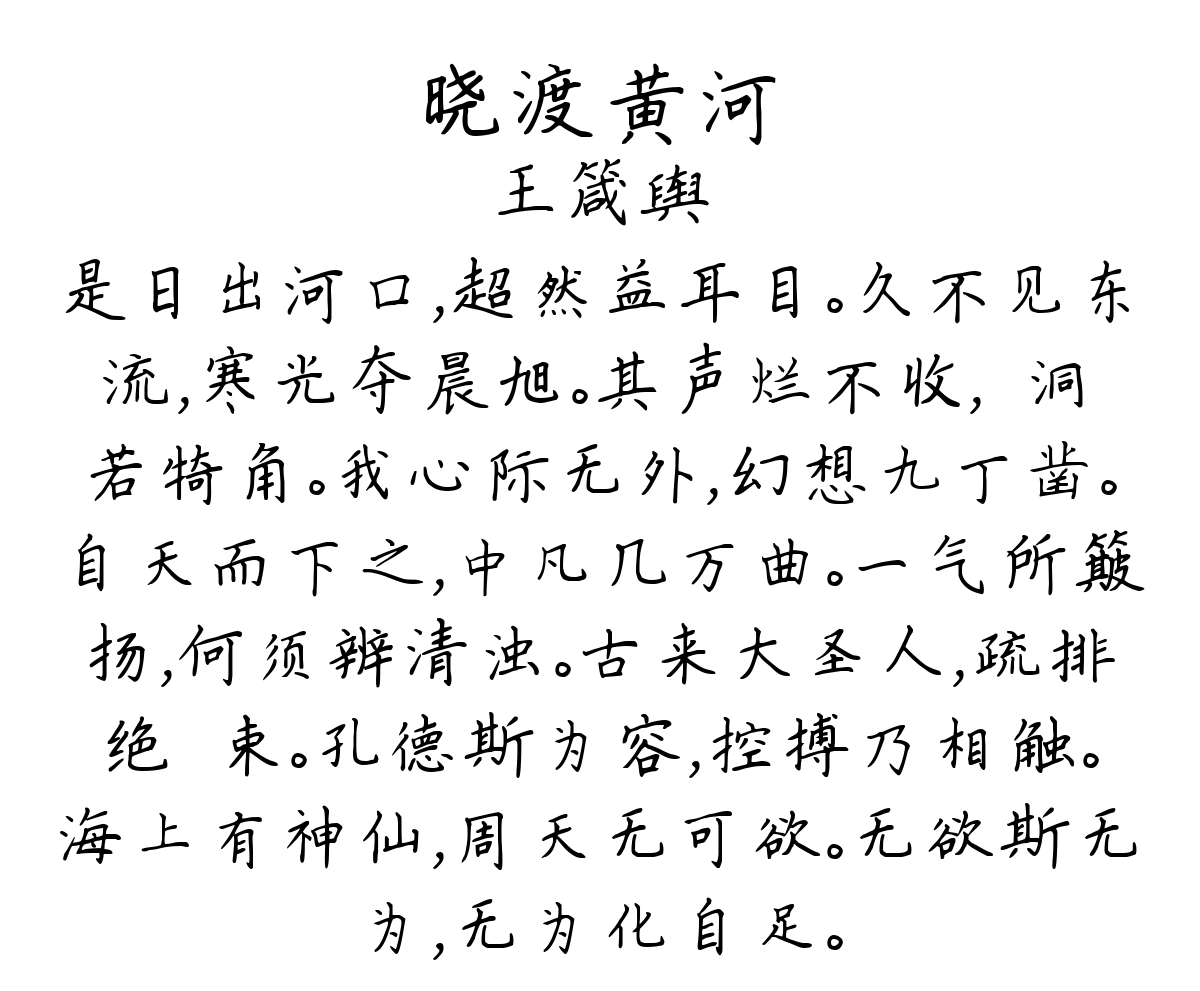 晓渡黄河
王箴舆
是日出河口,超然益耳目。久不见东
流,寒光夺晨旭。其声烂不收, 洞
若犄角。我心际无外,幻想九丁凿。
自天而下之,中凡几万曲。一气所簸
扬,何须辨清浊。古来大圣人,疏排
绝 束。孔德斯为容,控搏乃相触。
海上有神仙,周天无可欲。无欲斯无
为,无为化自足。